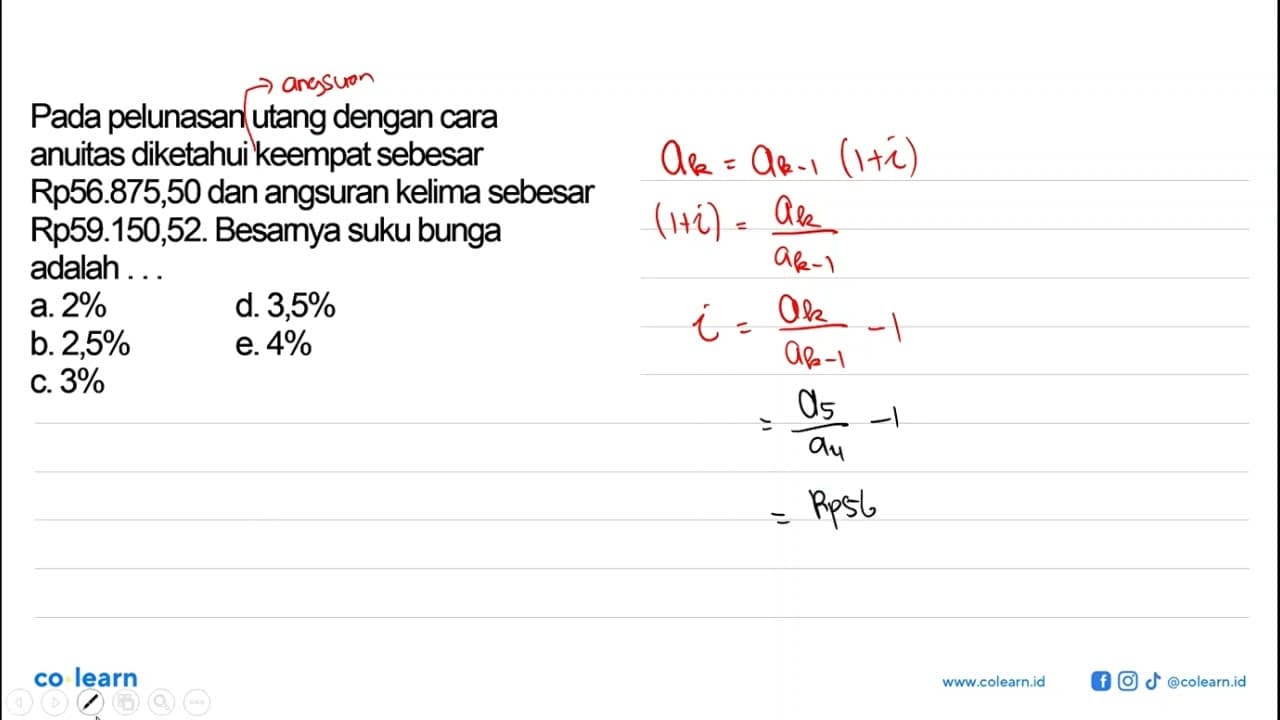 → angsuran
Pada pelunasan utang dengan cara
anuitas diketahui keempat sebesar
Rp56.875,50 dan angsuran kelima sebesar
Rp59.150,52. Besarnya suku bunga
adalah . . .
a. 2% d. 3,5%
b. 2,5% e. 4%
c. 3%
ak = ak-1 (1+i)
(1+i) = ak / ak-1
i = ak / ak-1 - 1
= a5 / a4 - 1
= Rp56
co learn
www.colearn.id
@colearn.id